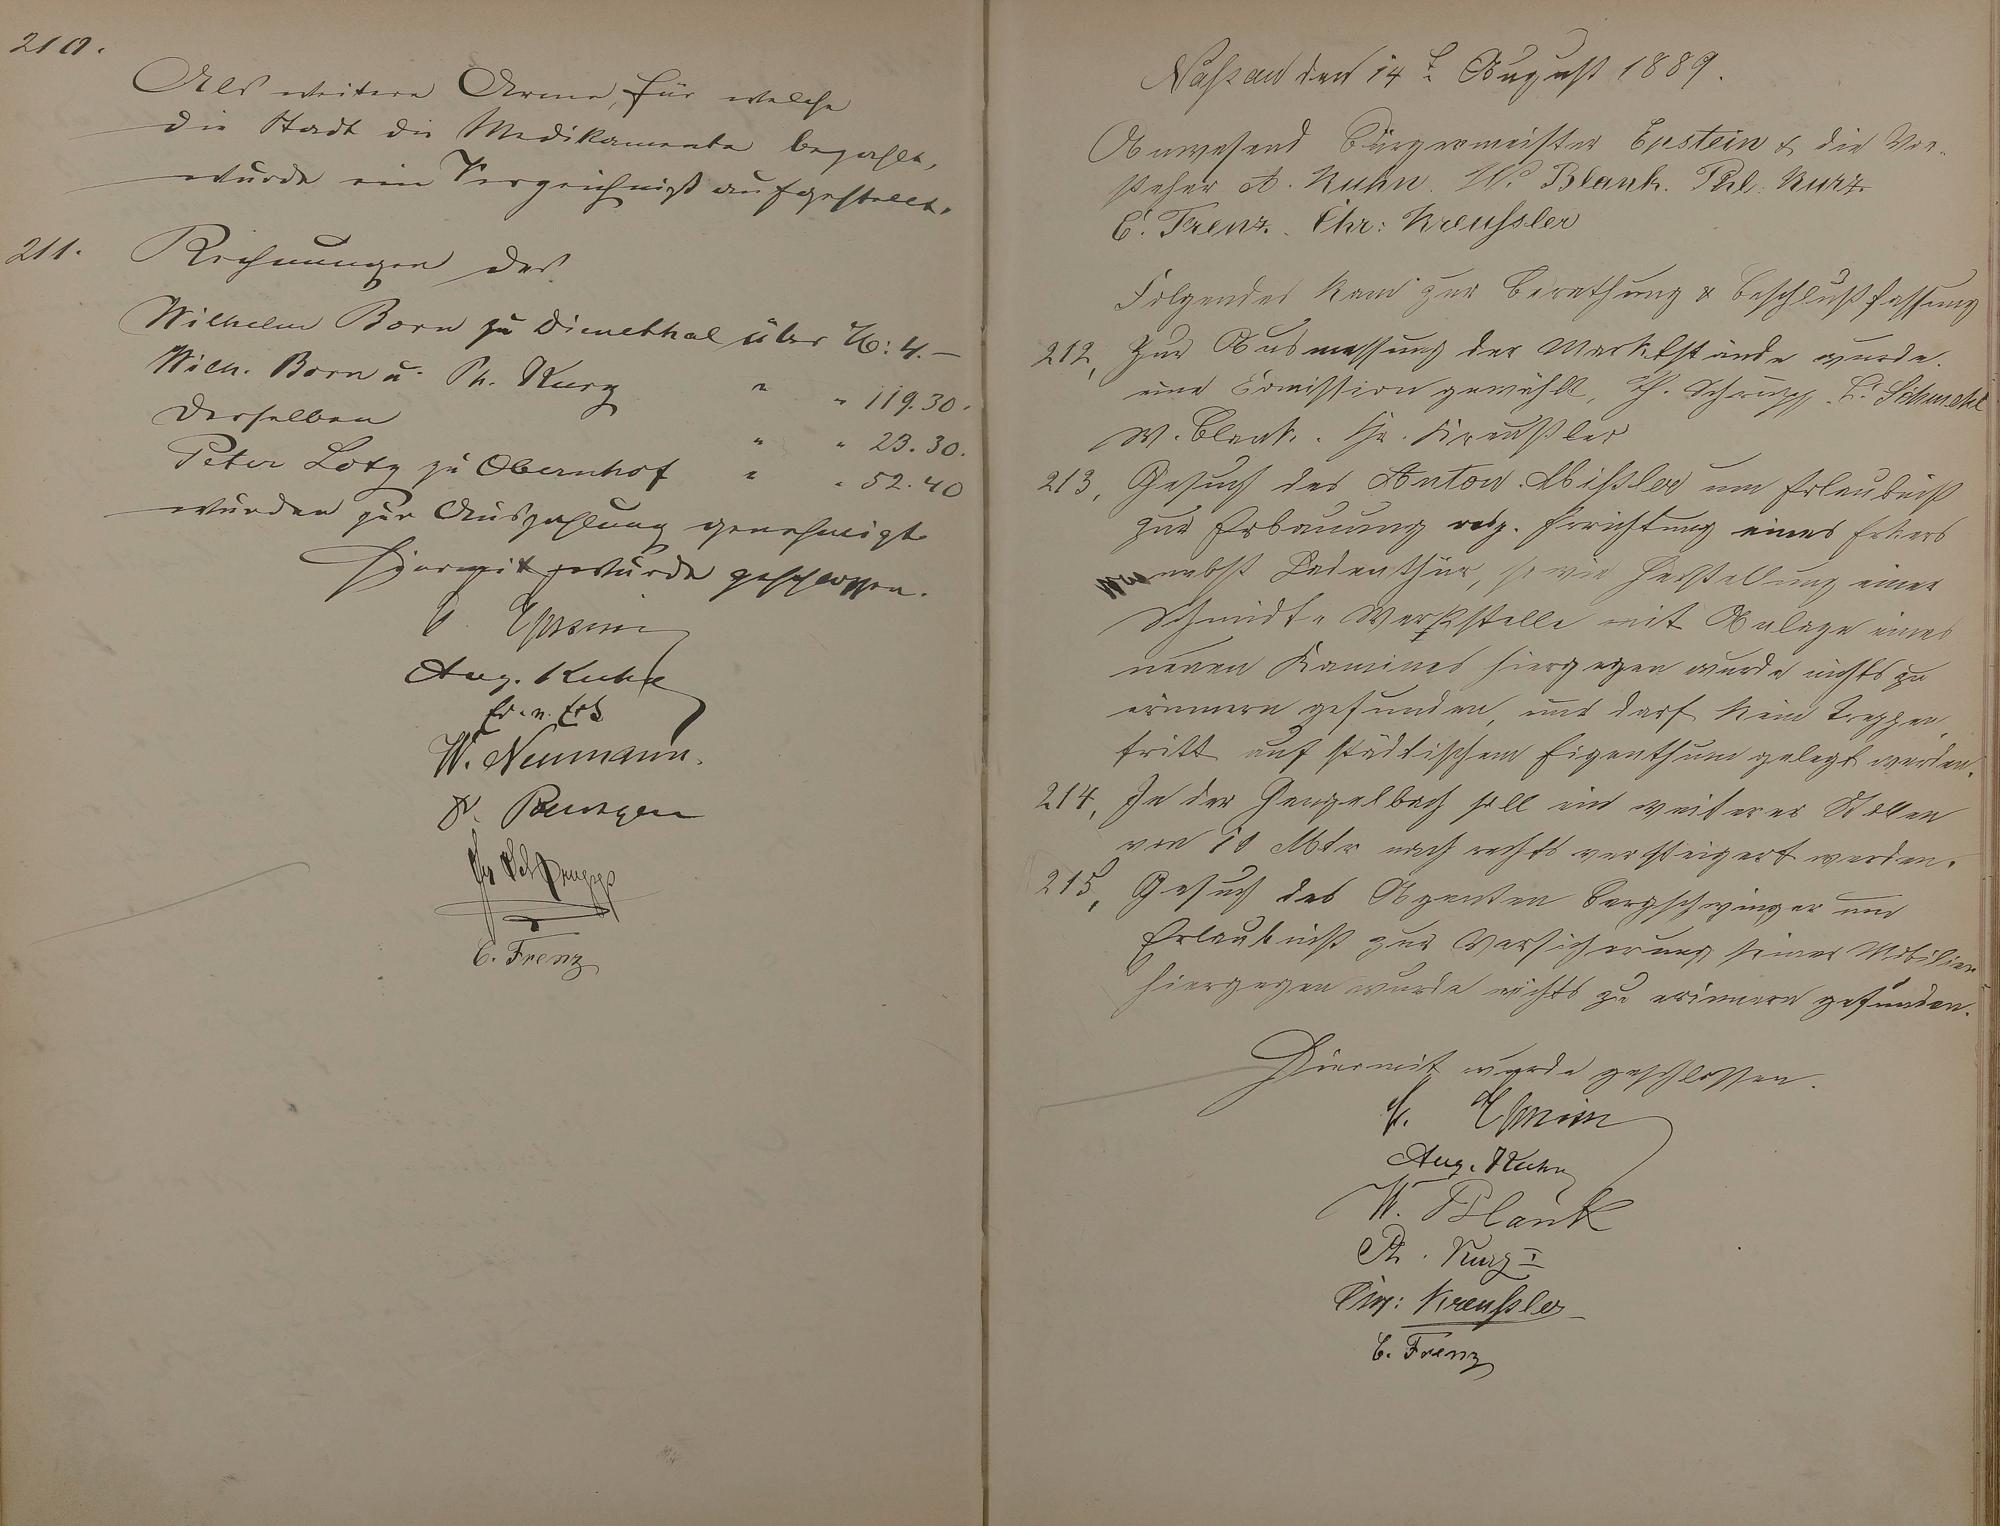 210.
Als weitere Arme, für welche
die Stadt die Medikamente bezahlt,
wurde ein Verzeichniß aufgestellt.
211. Rechnungen des
Wilhelm Born zu Dienethal über M: 4.—
Wilh. Born u. Ph. Kurz " " 119.30.
Derselben " " 23.30.
Peter Lotz zu Obernhof " " 52.40
wurden zur Auszahlung genehmigt
Hiermit wurde geschlossen.
Epstein
Aug. Kuhn
W. Neumann.
C. Frenz
Nassau den 14t August 1889.
Anwesend Bürgermeister Epstein & die Vor-
steher A. Kuhn. W. Blank. Phl: Kurz
C. Frenz. Chr: Kreußler
Folgendes kam zur Berathung & Beschlußfassung
212, Zur Ausmessung der Marktstände wurde
eine Comission gewählt, L. Schmahl
W. Blank. Chr. Kreußler
213, Gesuch des Anton Mißler um Erlaubniß
zur Erbauung resp. Errichtung eines Erkers
nebst Ladenthür, sowie Herstellung einer
Schmidt- Werkstelle mit Anlage eines
neuen Kamines hiergegen wurde nichts zu
erinnern gefunden, und darf kein Treppen
tritt auf städtischem Eigenthum gelegt werden.
214, In der Gengelbach soll ein weiterer Stollen
von 10 Mtr nach rechts versteigert werden.
215, Gesuch des Agenten Bergschwinger um
Erlaubniß zur Versicherung seines Mobiliar
hiergegen wurde nichts zu erinnern gefunden.
Hiermit wurde geschlossen.
Epstein
Aug. Kuhn
W. Blank
Ph. Kurz I
Chr: Kreußler
C. Frenz